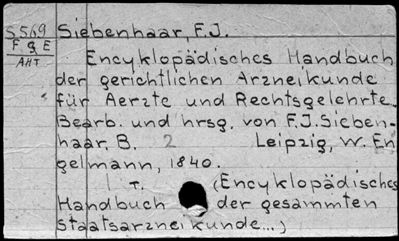 S 569 Siebenhaar, F.J.
F 9 E
AHT
Encyklopädisches Handbuch
der gerichtlichen Arzneikunde
für Aerzte und Rechtsgelehrte.
Bearb. und hrsg. von F.J. Sieben-
haar, B. 2 Leipzig, W. En
gelmann, 1840.
T. (Encyklopädisches
Handbuch der gesammten
Staatsarzneikunde...)